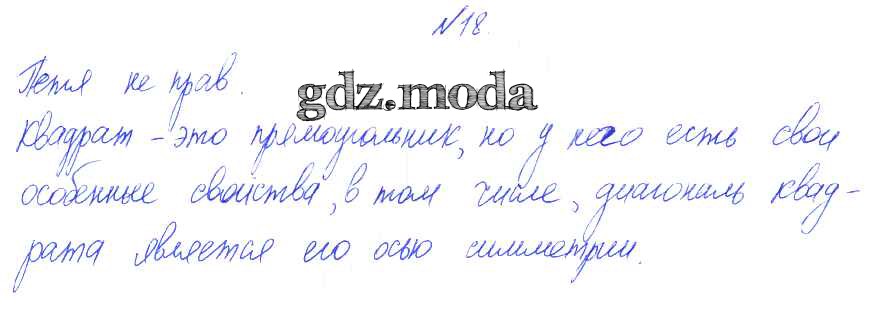 №18.
Петя не прав.
gdz.moda
Квадрат – это прямоугольник, но у него есть свои
особенные свойства, в том числе, диагональ квад-
рата является его осью симметрии.